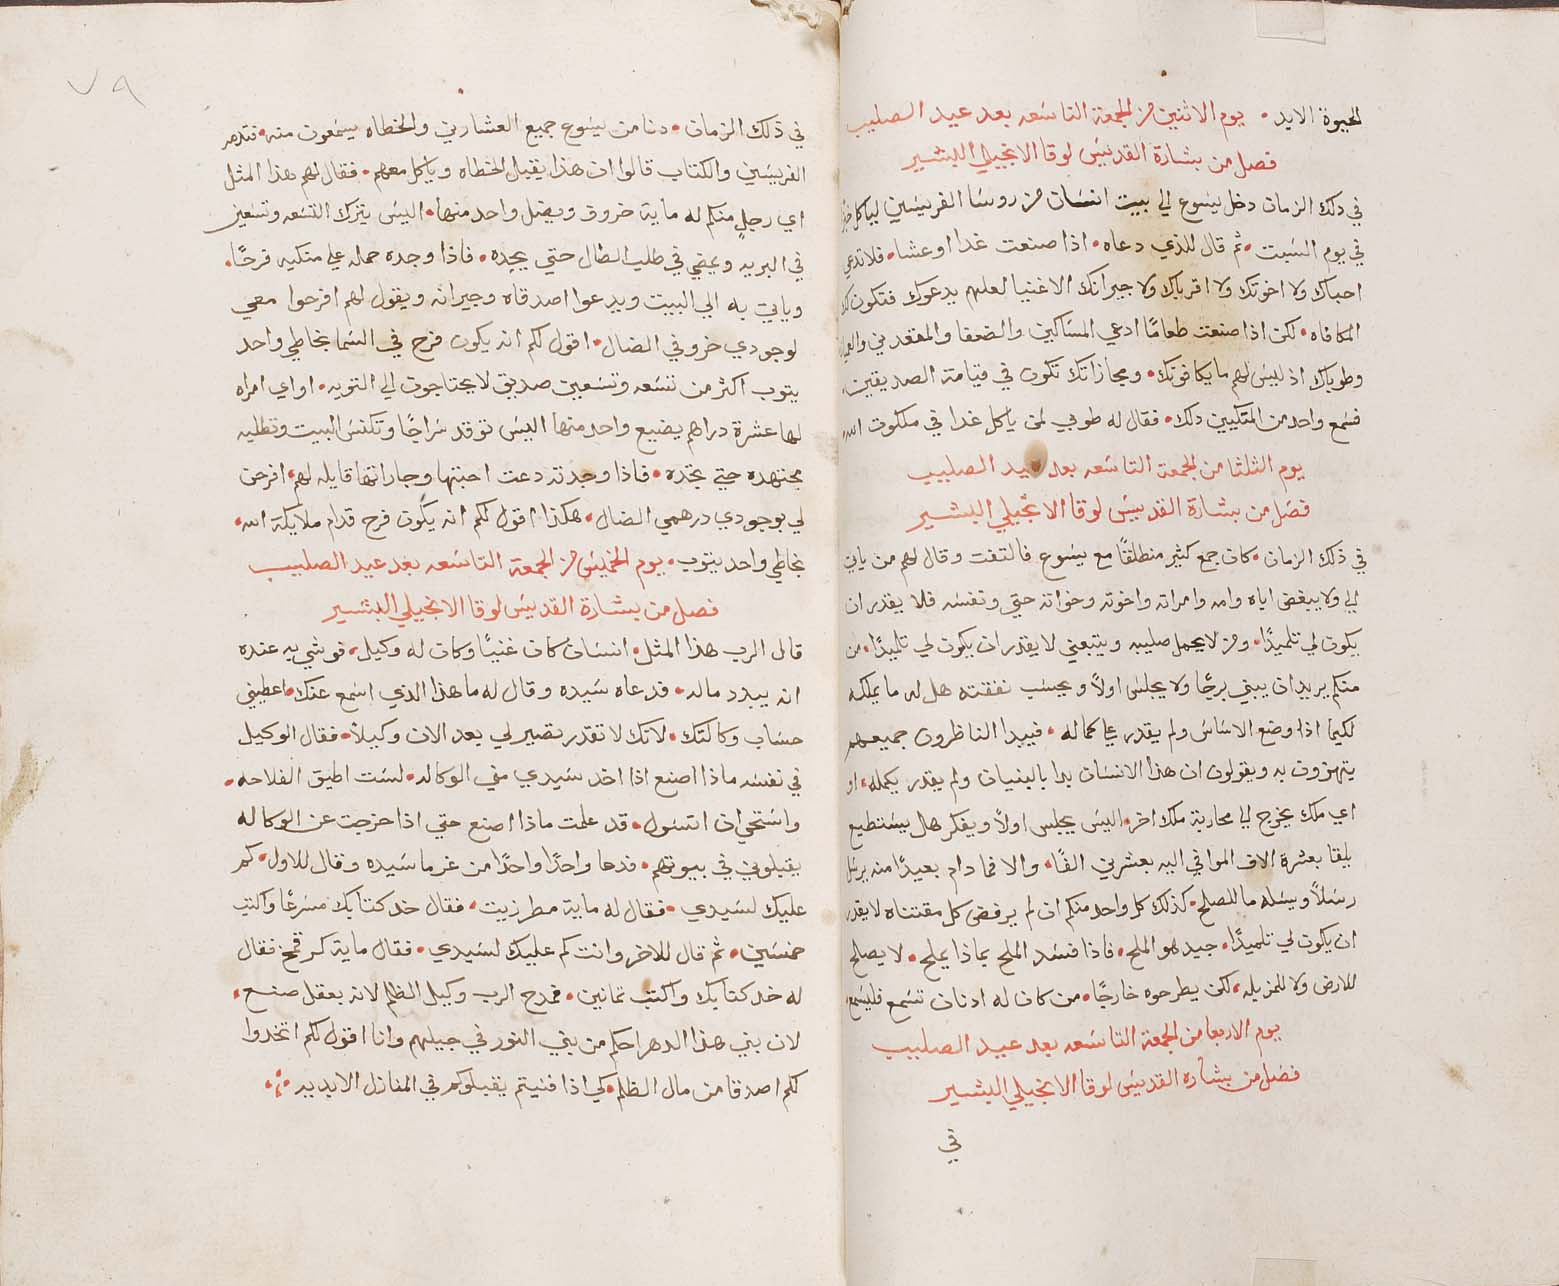 الحيوة الابد • يوم الاثنين من الجمعة التاسعه بعد عيد الصليب
فصل من بشارة القديس لوقا الانجيلي البشير
في ذلك الزمان دخل يسوع الي بيت انسان من روسا الفريسين لياكل
في يوم السبت • ثم قال للذي دعاه • اذا صنعت غدا او عشا • فلا تدعي
احباك ولا اخوتك ولا اقرباك ولا جيرانك الاغنيا لعلهم يدعوك فتكون
المكافاه • لكن اذا صنعت طعامًا ادعي المساكين والضعفا والمقعدين
وطوباك اذ ليس لهم ما يكافوتك • ومجازاتك تكون في قيامة الصديقين
فسمع واحد من المتكيين ذلك • فقال له طوبي لمن ياكل غدا في ملكوت الله
يوم الثلثا من الجمعة التاسعه بعد عيد الصليب
فصل من بشارة القديس لوقا الانجيلي البشير
في ذلك الزمان • كان جمع كثير منطلقًا مع يسوع فالتفت وقال لهم من ياتي
الي ولا يبغض اباه وامه وامراته واخوته وخواته حتي ونفسه فلا يقدر ان
يكون لي تلميذًا • ومن لا يحمل صليبه ويتبعني لا يقدر ان يكون لي تلميذًا • من
منكم يريد ان يبني برجًا ولا يجلس اولاً ويحسب نفقته هل له ما يملكه
لكيما اذا وضع الاساس ولم يقدر علي كماله • فيبدا الناظرون جميعهم
يتهزون به ويقولون ان هذا الانسان بدا بالبنيان ولم يقدر يكمله • او
اي ملك يخرج الي محاربة ملك اخر • اليس يجلس اولاً ويفكر هل يستطيع
يلقا بعشرة الاف الموافي اليه بعشرين الفًا • والا فما دام بعيدًا منه يرسل
رسلاً ويسله ما للصلح • كذلك كل واحد منكم ان لم يرفض كل مقتناه لا يقدر
ان يكون لي تلميذًا • جيد هو الملح • فاذا فسد الملح بماذا يملح • لا يصلح
للارض ولا للمزبله • لكن يطرحوه خارجًا • من كان له ادنان تسمع فليسمع
يوم الاربعا من الجمعة التاسعه بعد عيد الصليب
فصل من بشاره القديس لوقا الانجيلي البشير
في
٧٩
في ذلك الزمان • دنا من يسوع جميع العشارين والخطاه يسمعون منه • فتدمر
الفريسين والكتاب قالوا ان هذا يقبل الخطاه وياكل معهم • فقال لهم هذا المثل
اي رجلٍ منكم له ماية خروف ويضل واحد منها • اليس يترك التسعه وتسعين
في البريه ويمضي في طلب الضال حتي يجده • فاذا وجده حمله علي منكبه فرحًا •
وياتي به الي البيت ويدعوا اصدقاه وجيرانه ويقول لهم افرحوا معي
لوجودي خروفي الضال • اقول لكم انه يكون فرح في السما بخاطي واحد
يتوب اكثر من تسعه وتسعين صديق لا يحتاجون الي التوبه • او اي امراه
لها عشرة دراهم يضيع واحد منها اليس توقد سراجًا وتكنس البيت وتطلبه
مجتهده حتي تجده • فاذا وجدته دعت احبتها وجاراتها قايله لهم • افرحن
لي بوجودي درهمي الضال • هكذا اقول لكم انه يكون فرح قدام ملايكة الله •
بخاطي واحد يتوب • يوم الخميس من الجمعة التاسعه بعد عيد الصليب
فصل من بشارة القديس لوقا الانجيلي البشير
قال الرب هذا المثل • انسان كان غنيًا وكان له وكيل • فوشي به عنده
انه يبدد ماله • فدعاه سيده وقال له ما هذا الذي اسمع عنك • اعطيني
حساب وكالتك • لانك لا تقدر تصير لي بعد الان وكيلاً • فقال الوكيل
في نفسه ماذا اصنع اذا اخد سيدي مني الوكاله • لست اطيق الفلاحه •
واستحي ان اتسول • قد علمت ماذا اصنع حتي اذا خرجت عن الوكاله
يقبلوني في بيوتهم • فدعا واحدًا واحدًا من غرما سيده وقال للاول • كم
عليك لسيدي • فقال له ماية مطر زيت • فقال خد كتابك مسرعًا واكتب
خمسين • ثم قال للاخر وانت كم عليك لسيدي • فقال ماية كر قمح فقال
له خد كتابك واكتب تمانين • فمدح الرب وكيل الظلم لانه بعقل صنع •
لان بني هذا الدهر احكم من بني النور في جيلهم وانا اقول لكم اتخدوا
لكم اصدقا من مال الظلم • لكي اذا فنيتم يقبلوكم في المنازل الابديه •